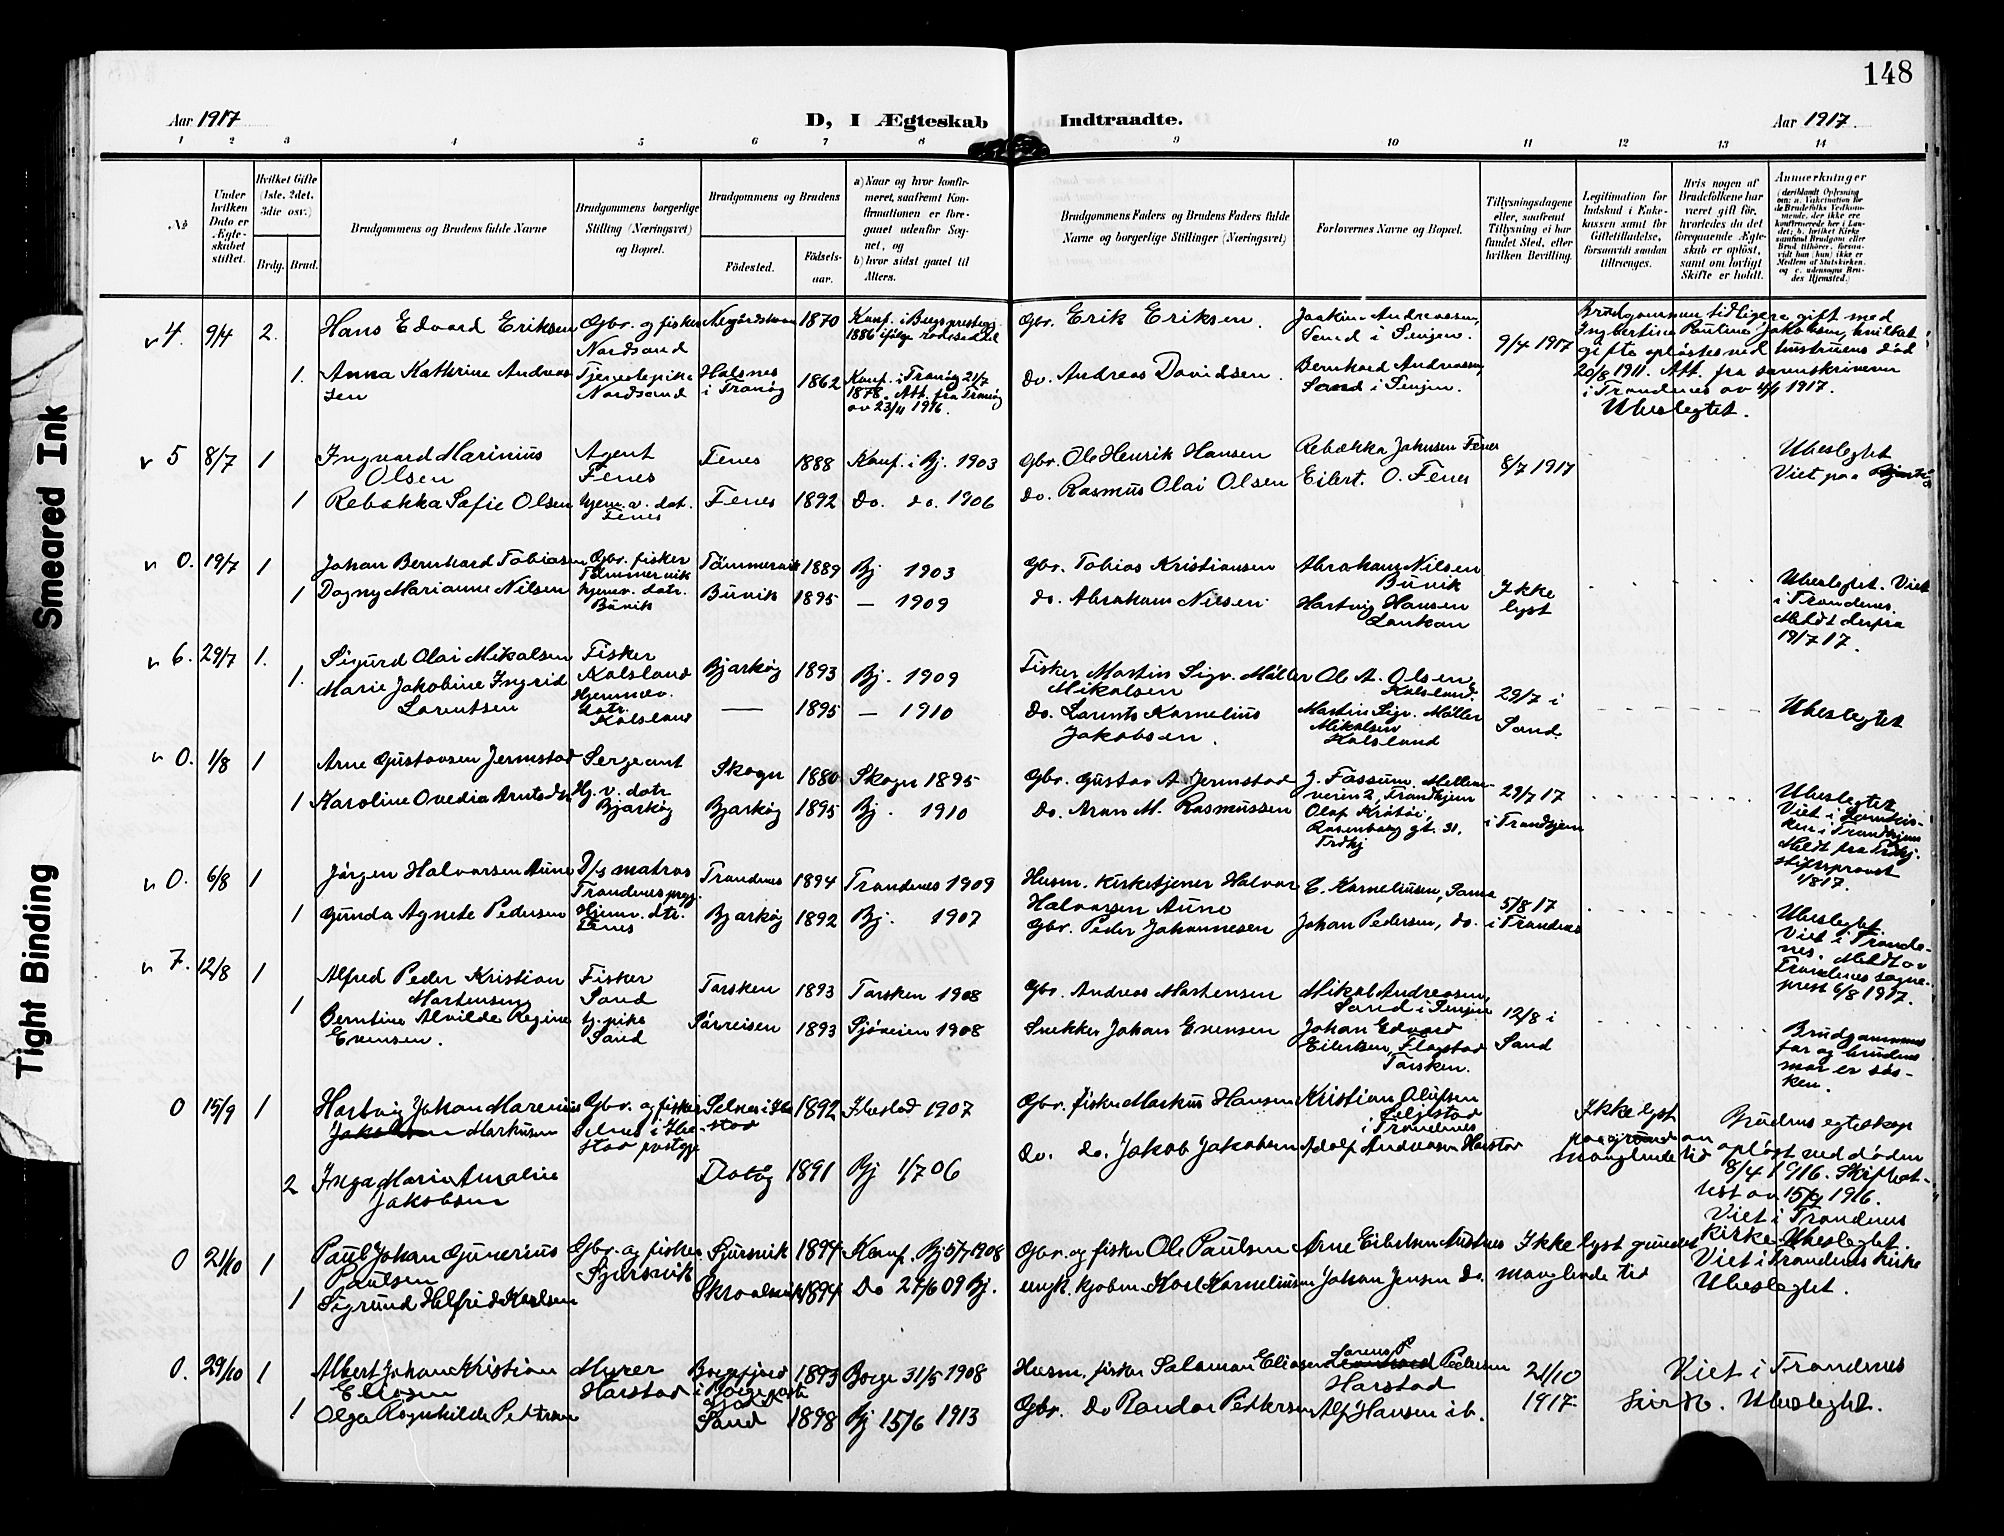 148
Aar 1917
D, I Ægteskab Indtraadte.
Aar 1917.
1 2 3 4 5 6 7 8 9 10 11 12 13 14
№
Under hvilken Dato er Ægteskabet stiftet.
Hvilket Gifte (1ste, 2det, 3die osv.)
Brdg. Brud.
Brudgommens og Brudens fulde Navne
Brudgommens borgerlige Stilling (Næringsvei) og Bopæl.
Brudgommens og Brudens
Födested.
Födselsaar.
a) Naar og hvor konfirmeret, saafremt Konfirmationen er foregaaet udenfor Sognet, og
b) hvor sidst gaaet til Alters.
Brudgommens Faders og Brudens Faders fulde Navne og borgerlige Stillinger (Næringsvei)
Forlovernes Navne og Bopæl.
Tillysningsdagene eller, saafremt Tillysning ei har fundet Sted, efter hvilken Bevilling.
Legitimation for Indskud i Enkekassen samt for Giftetilladelse, forsaavidt saadan tiltrænges.
Hvis nogen af Brudefolkene har været gift för, hvorledes da det foregaaende Ægteskab er oplöst, samt om lovligt Skifte er holdt.
Anmerkninger
(deriblandt Oplysning om: a. Vakcination for de Brudefolks Vedkommende, der ikke ere konfirmerede her i Landet; b. hvilket Kirkesamfund Brudgom eller Brud tilhörer, forsaavidt han (hun) ikke er Medlem af Statskirken, og c. udensogns Brudes Hjemsted.)
v 4. 9/4 2. Hans Edvard Eriksen Gbr. og fisker Nordsand 1870 Konf. i Bergs prestegj. 1886 ifølge rodeseddel Gbr. Erik Eriksen. Joakim Andreassen, Sand i Senjen. 9/4 1917 Brudgommen tidligere gift med Ingbertine Pauline Jakobsen, hvilket gifte opløstes ved hustruens død 20/8 1911. Att. fra sorenskriveren i Trondenes av 4/4 1917. Ubeslegtet.
1. Anna Kathrine Andreassen Tjenestepike Nordsand Halsnes i Tranøy 1862 Konf. i Tranøy 21/7 1878. Att. fra Tranøy av 23/11 1916. do. Andreas Davidsen. Bernhard Andreassen, Sand i Senjen.
v 5 8/7 1 Ingvard Marinius Olsen Agent Fenes Fenes 1888 Konf. i Bj. 1903 Gbr. Ole Henrik Hansen Rebekka Johnsen Fenes 8/7 1917 Ubeslegtet Viet paa
1 Rebekka Sofie Olsen hjem. v. dat. Fenes Fenes 1892 Do. do. 1906 do. Rasmus Olai Olsen Eilert. O. Fenes
v 0. 19/7 1 Johan Bernhard Tobiasen Gbr. fisker Tømmervik Tömmervik 1889 Bj 1903 Gbr. Tobias Kristiansen Abraham Nilsen Buvik Ikke lyst Ubeslegtet. Viet i Trondenes. Meldt derfra 19/7 17.
1 Dagny Marianne Nilsen hjemv. datr. Buvik Buvik 1895 — 1909 do. Abraham Nilsen. Hartvig Hansen Lankan
v 6. 29/7 1. Sigurd Olai Mikalsen Fisker Kalsland Bjarkøy 1893 Bj. 1909 Fisker Martin Sigv. Møller Mikalsen Ole A. Olsen, Kalsland. 29/7 i Sand. Ubeslegtet
1. Marie Jakobine Ingrid Lorentsen Hjemmev. datr. Kalsland — 1895 — 1910 do. Lorents Kornelius Jakobsen. Martin Sigv. Møller Mikalsen Kalsland
v 0. 1/8 1 Arne Gustavsen Jermstad Sergeant Skogn 1880 Skogn 1895 Gbr. Gustav A. Jermstad J. Fossum, Trondhjem 29/7 17 i Trondhjem Ubeslegtet Viet i i Trondhjem Meldt fra Trdhj. stiftsprovst 1/8 17.
1 Karoline Ovedia Arntsdtr Hj. v. datr Bjarkøy Bjarkøy 1895 Bj. 1910 do. Aron M. Rasmussen Olaf Rosenborg gt. 31. Trdhj
v 0. 6/8 1 Jørgen Halvorsen Aune D/s matros Trondenes prgj. Trondenes 1894 Trondenes 1909 Husm. kirketjener Halvor Halvorsen Aune C. Korneliussen, Sama 5/8 17 i Trondenes Ubeslegtet. Viet i Trondenes. Meldt av Trondenes sogneprest 6/8 1917.
1 Gunda Agnete Pedersen Hjem v. dtr. Fenes Bjarkøy 1892 Bj. 1907 Gbr. Peder Johannesen Johan Pedersen, do.
v 7. 12/8 1 Alfred Peder Kristian Mortensen Fisker Sand Torsken 1893 Torsken 1908 Gbr. Andreas Mortensen Mikal Andreasen, Sand i Senjen 12/8 i Sand Brudgommens far og brudens mor er søsken.
1 Berntine Alvilde Regine Evensen. tj. pike Sand Sørreisen 1893 Sjøveien 1908 Snekker Johan Evensen Johan Edvard Eilertsen, Flagstad Torsken.
0 15/9 1 Hartvig Johan Marenius Jakobsen Markusen Gbr. og fisker Selnes i Ibestad prestegj Selnes i Ibestad 1892 Ibestad 1907 Gbr. fisker Markus Hansen Kristian Olufsen i Trondenes Ikke lyst paa grund av manglende tid Brudens egteskap opløst ved døden 8/4 1916. Skifteattest av 15/9 1916. Viet i Trondenes kirke. Ubeslegtet.
2 Inga Marie Amalie Jakobsen 1891 Bj 1/7 06 Do. do. Jakob Jakobsen Adolf Andreasen Harstad
0 21/10 1 Paul Johan Gunerius Paulsen Gbr. og fisker Sjursvik Sjursvik 1894 Konf. Bj 5/7 1908 Gbr. og fisker Ole Paulsen Arne Eilertsen Austnes Ikke lyst grundet manglende tid Viet i Trondenes kirke Ubeslegtet.
1 Sigrund Helfrid Karlsen 1894 Do 27/6 09 Bj. ungk. kjøbm. Karl Kornelius Johan Jensen do.
0. 29/10 1 Albert Johan Kristian Eliasen Myrer Harstad Borgefjord i Borge prestegjeld 1893 Borge 31/5 1908 Husm. fisker Salamon Eliasen Lorens P. Pedersen Harstad 21/10 1917. Viet i Trondenes kirke. Ubeslegtet.
1 Olga Ragnhilde Pettersen Sand 1898 Bj 15/6 1913 Gbr. Do Randor Pettersen Alf Hansen ib.
Smeared Ink
Tight Binding